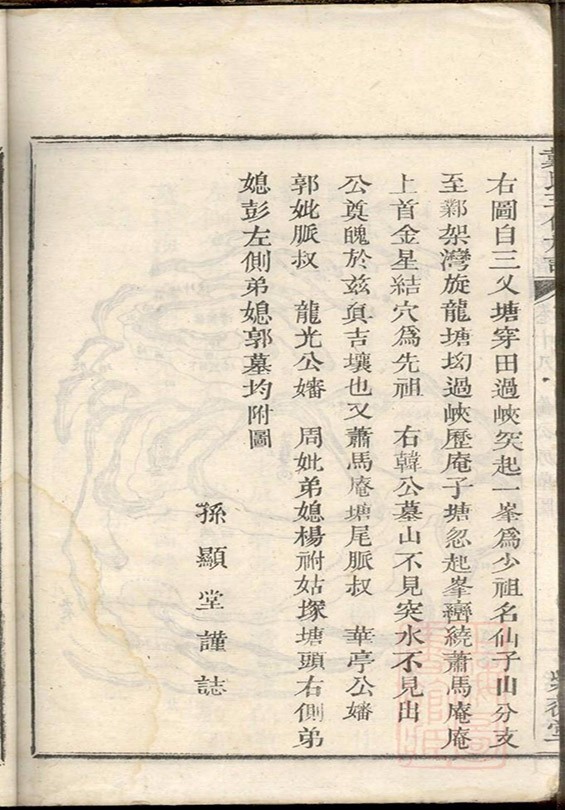 右圖自三父塘穿田過峽突起一峯爲少祖名仙子山分支
至鄴架灣旋龍塘坳過峽歷庵子塘忽起峯巒繞蕭馬庵庵
上首金星結穴爲先祖 右韓公墓山不見突水不見出
公奠魄於兹眞吉壤也又蕭馬庵塘尾脈叔 華亭公嬏
郭妣脈叔 龍光公嬏 周妣弟媳楊祔姑塚塘頭右側弟
媳彭左側弟媳郭墓均附圖
孫顯堂謹誌